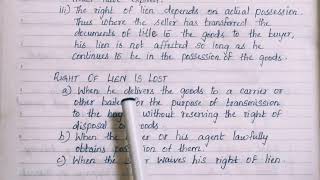 iii) The right of lien depends on actual possession.
Thus where the seller has transferred the
documents of title to the goods to the buyer,
his lien is not affected so long as he
continues to be in the possession of the goods.
RIGHT OF LIEN IS LOST
a) When he delivers the goods to a carrier or
other for the purpose of transmission
to the without reserving the right of
disposal goods.
b) When the or his agent lawfully
obtains possession of them.
c) When the waives his right of lien.